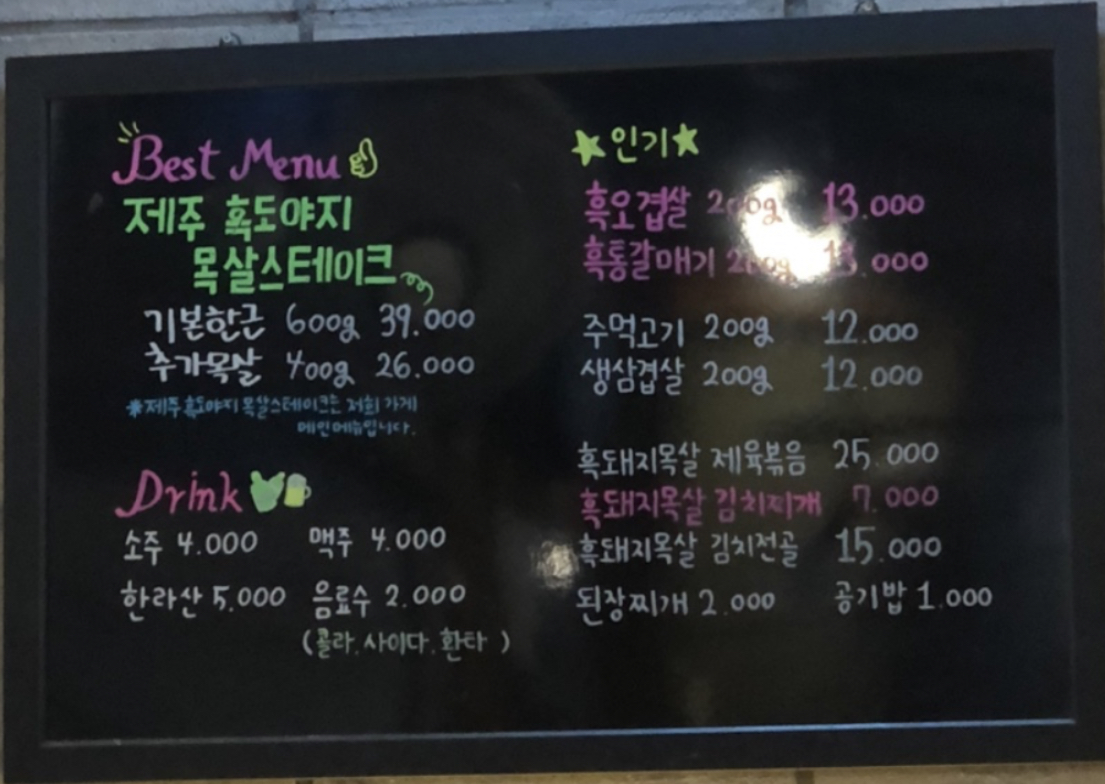 Best Menu
제주 흑도야지
목살스테이크
기본한근 600g 39.000
추가목살 400g 26.000
*제주흑도야지 목살스테이크는 저희 가게
메인메뉴입니다.
Drink
소주 4.000 맥주 4.000
한라산 5,000 음료수 2.000
(콜라.사이다.환타 )
★인기★
흑오겹살 200g 13.000
흑통갈매기 200g 13.000
주먹고기 200g 12.000
생삼겹살 200g 12.000
흑돼지목살 제육볶음 25.000
흑돼지목살 김치찌개 7.000
흑돼지목살 김치전골 15.000
된장찌개 2.000 공기밥 1.000